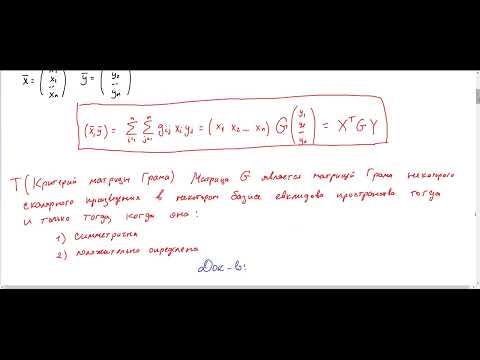 x̄ = (x₁ x₁ ... xₙ) ȳ = (y₂ ... yₙ)
(x̄, ȳ) = Σⁿᵢ₌₁ Σⁿⱼ₌₁ gᵢⱼ xᵢ yⱼ = (x₁ x₂ ... xₙ) G (y₁ y₂ ... yₙ) = XᵀGY
Т (Критерий матрицы Грама) Матрица G является матрицей Грама некоторого
скалярного произведения в некотором базисе евклидова пространства тогда
и только тогда, когда она:
1) симметрична
2) положительно определена
Док-в: